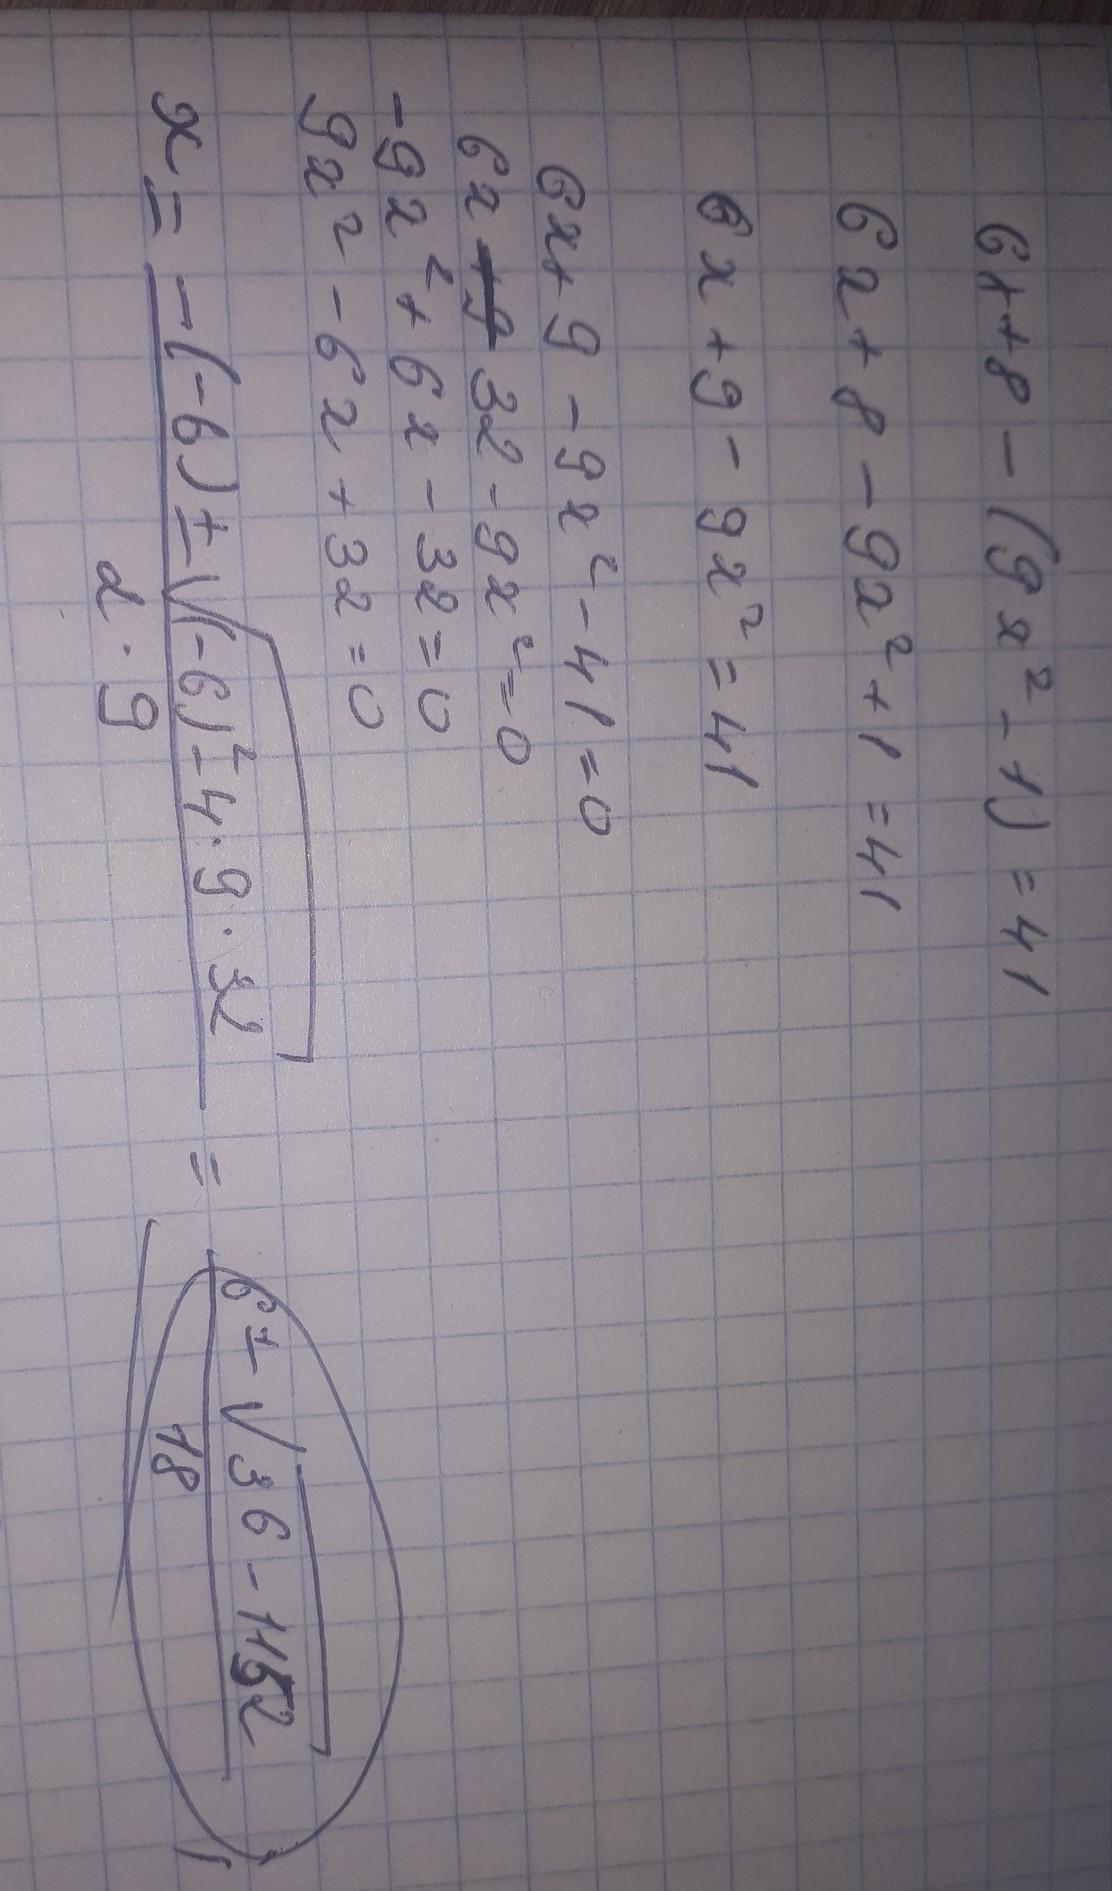 6x+8-(9x²-1)=41
6x+8-9x²+1=41
6x+9-9x²=41
6x+9-9x²-41=0
6x 32-9x²=0
-9x²+6x-32=0
9x²-6x+32=0
x=(-(-6)±√((-6)²-4·9·32))/(2·9)=(6±√(36-1152))/18